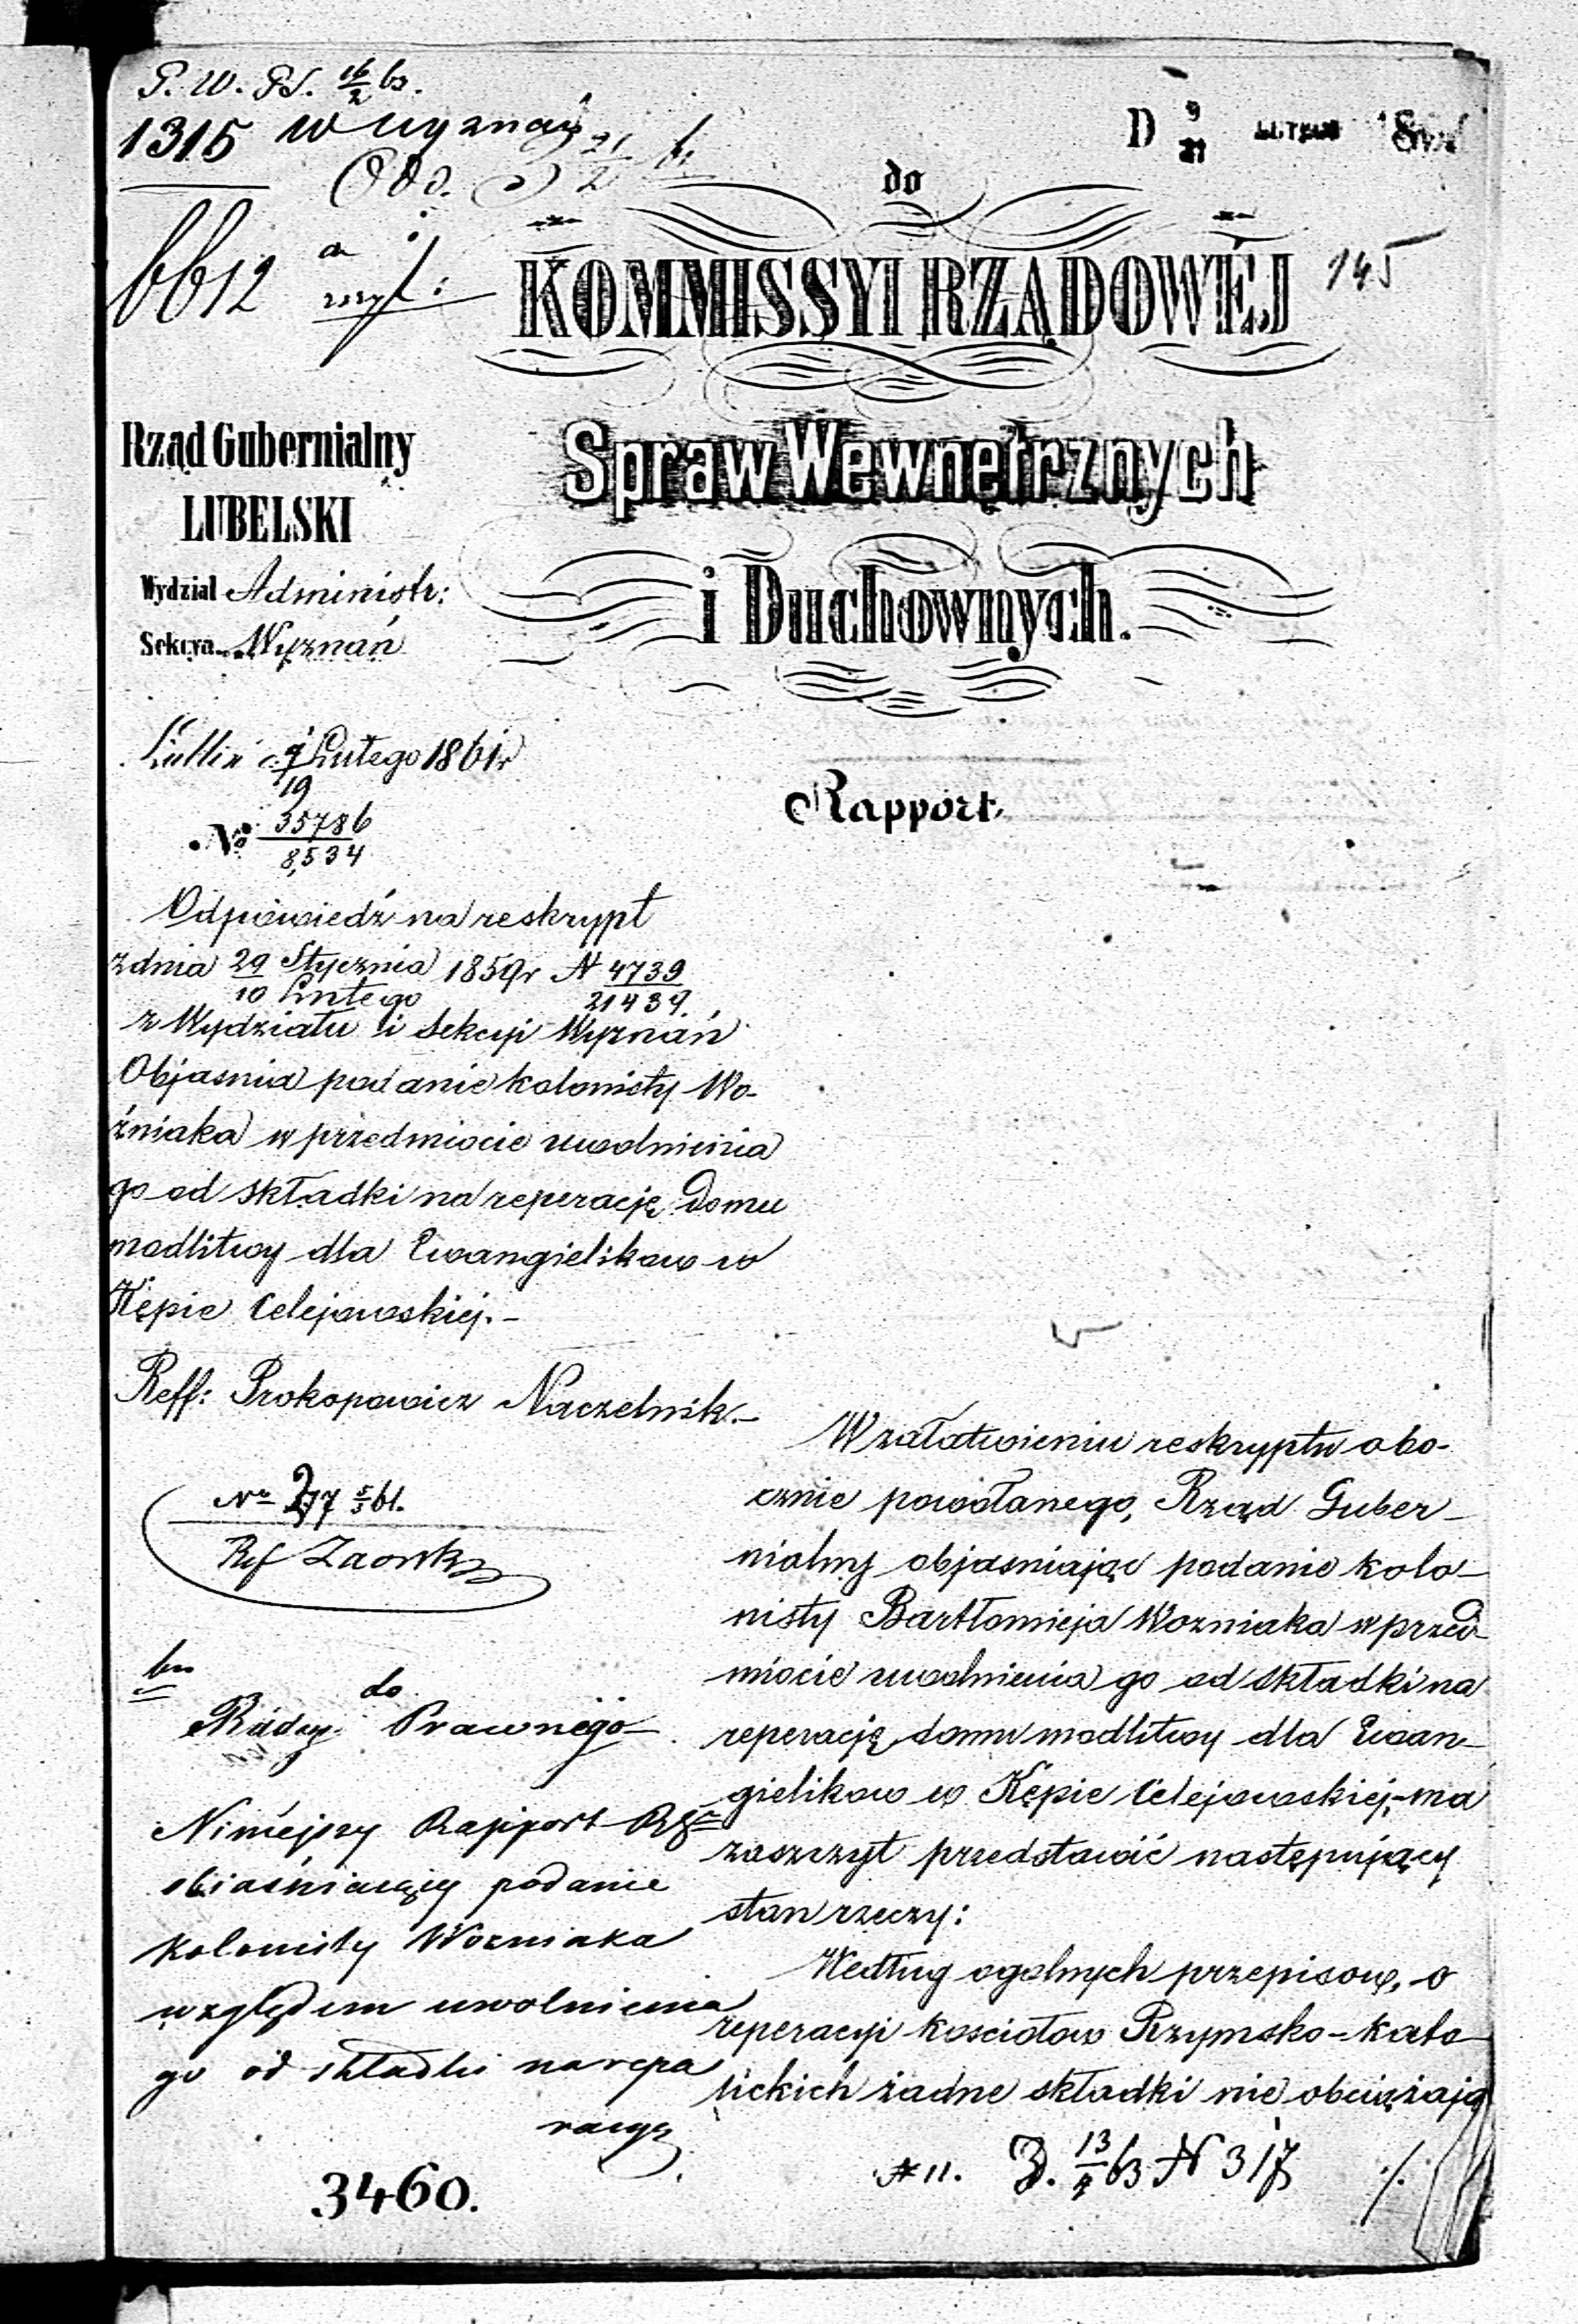 P. W. Pł. 16/2 61.
1315 Wyznań
Odd. 21/2 61
D 9/21 LUTEGO 186
do
6612
KOMMISSYI RZĄDOWÉJ
145
Spraw Wewnętrznych
i Duchownych.
Rząd Gubernialny
LUBELSKI
Wydział Administr:
Sekcya Wyznań
Lublin d. 7/19 Lutego 1861r
Rapport.
No 35786/8,534
Odpowiedź na reskrypt
z dnia 29 Stycznia/10 Lutego 1859r N 4739/21439.
z Wydziału i Sekcyi Wyznań
Objasnia podanie kolonisty Wo-
źniaka w przedmiocie uwolnienia
go od składki na reperację domu
modlitwy dla Ewangielikow w
Kępie Celejowskiej.-
Reff: Prokopowicz Naczelnik.-
No 277 5/3 61.
Ref
do
Radcy Prawnego
Niniéjszy Rapport
obiaśniaiący podanie
kolonisty Wozniaka
względem uwolnienia
go od składki na repa
racyę
3460.
W załatwieniu reskryptu obo-
cznie powołanego, Rząd Guber-
nialny objasniając podanie kolo-
nisty Bartłomieja Wozniaka w przed-
miocie uwolnienia go od składki na
reperację domu modlitwy dla Ewan-
gielikow w Kępie Celejowskiej,- ma
zaszczyt przedstawić następujący
stan rzeczy:
Według ogolnych przepisow, o
reperacyi kosciołow Rzymsko-kato-
lickich żadne składki nie obciążają
*11. Z. 13/4 63 N 317 ./.